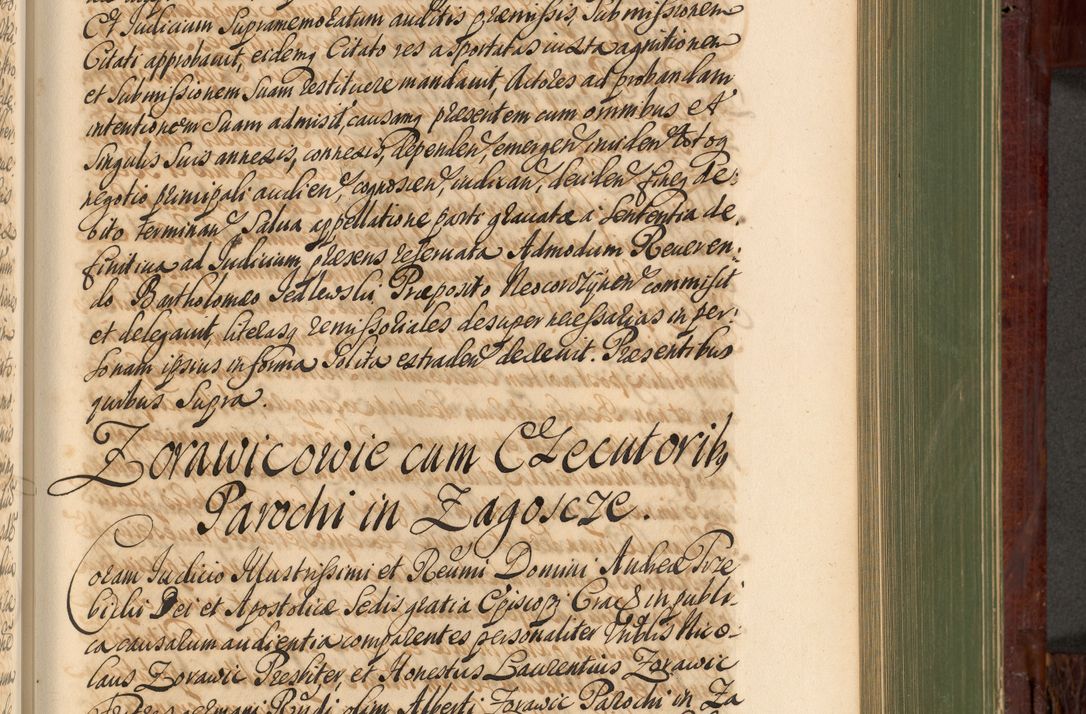 Et Judicium Supramemoratum auditis præmissis, Submissionem
Citati approbavit, eidemq Citato res asportatas iuxta agnitionem
et Submissionem Suam restituere mandavit, Actores ad probandam
intentionem Suam admisit, causamq præsentem cum omnibus et
Singulis Suis annexis, connexis, dependen, emergen, inciden totoq
negotio principali audien, cognoscen, iudican, deciden fineq De:
bito terminan Salva appellatione parti gravatæ a Sententia de
finitiva ad Judicium præsens reservata Admodum Reveren:
do Bartholomeo Jedlewski Præposito Neocorczynen commisit
et delegavit, literasq remissoriales desuper necessarias in per:
sonam ipsius in forma Solita extraden decrevit. Præsentibus
quibus Supra.
Zorawicowie cum Exekutorib,
Parochi in Zagoscze.
Coram Judicio Illustrissimi et Reumi Domini Andreæ Trze
bicki Dei et Apostolicæ Sedis gratia Episcopi Crac in publi:
ca causarum audientia comparentes personaliter Nblis Nico:
laus Zorawic Presbiter, et Honestus Laurentius Zorawic
Fratres germani Rndi olim Alberti Zorawic Parochi in Za